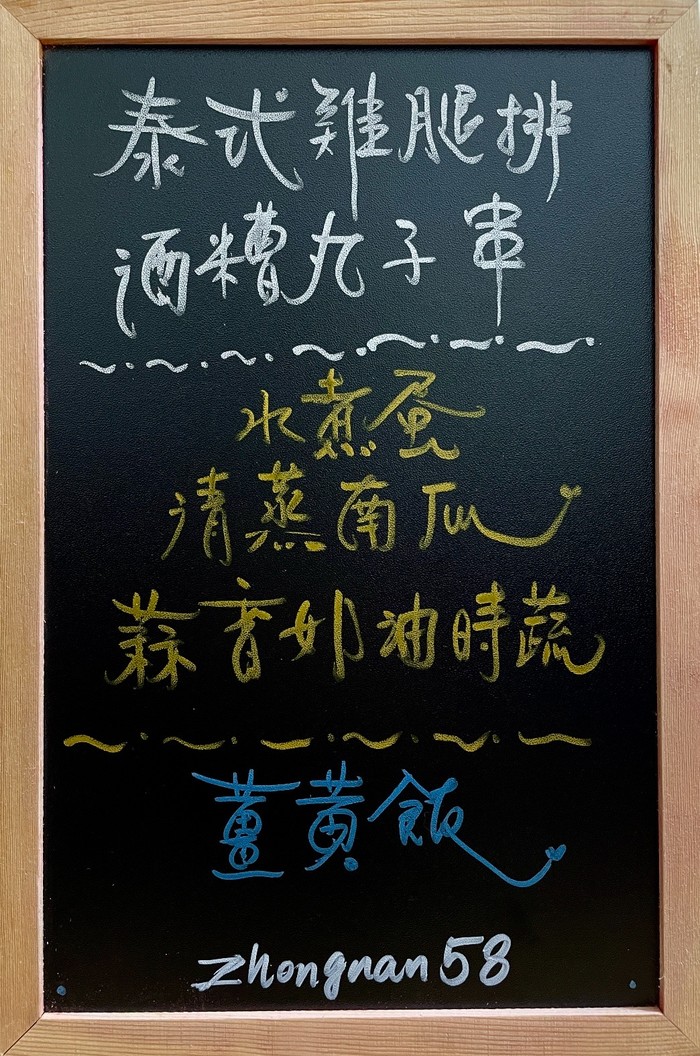 泰式雞腿排
酒糟丸子串
水煮蛋
清蒸南瓜
蒜香奶油時蔬
薑黃飯
zhongnan 58